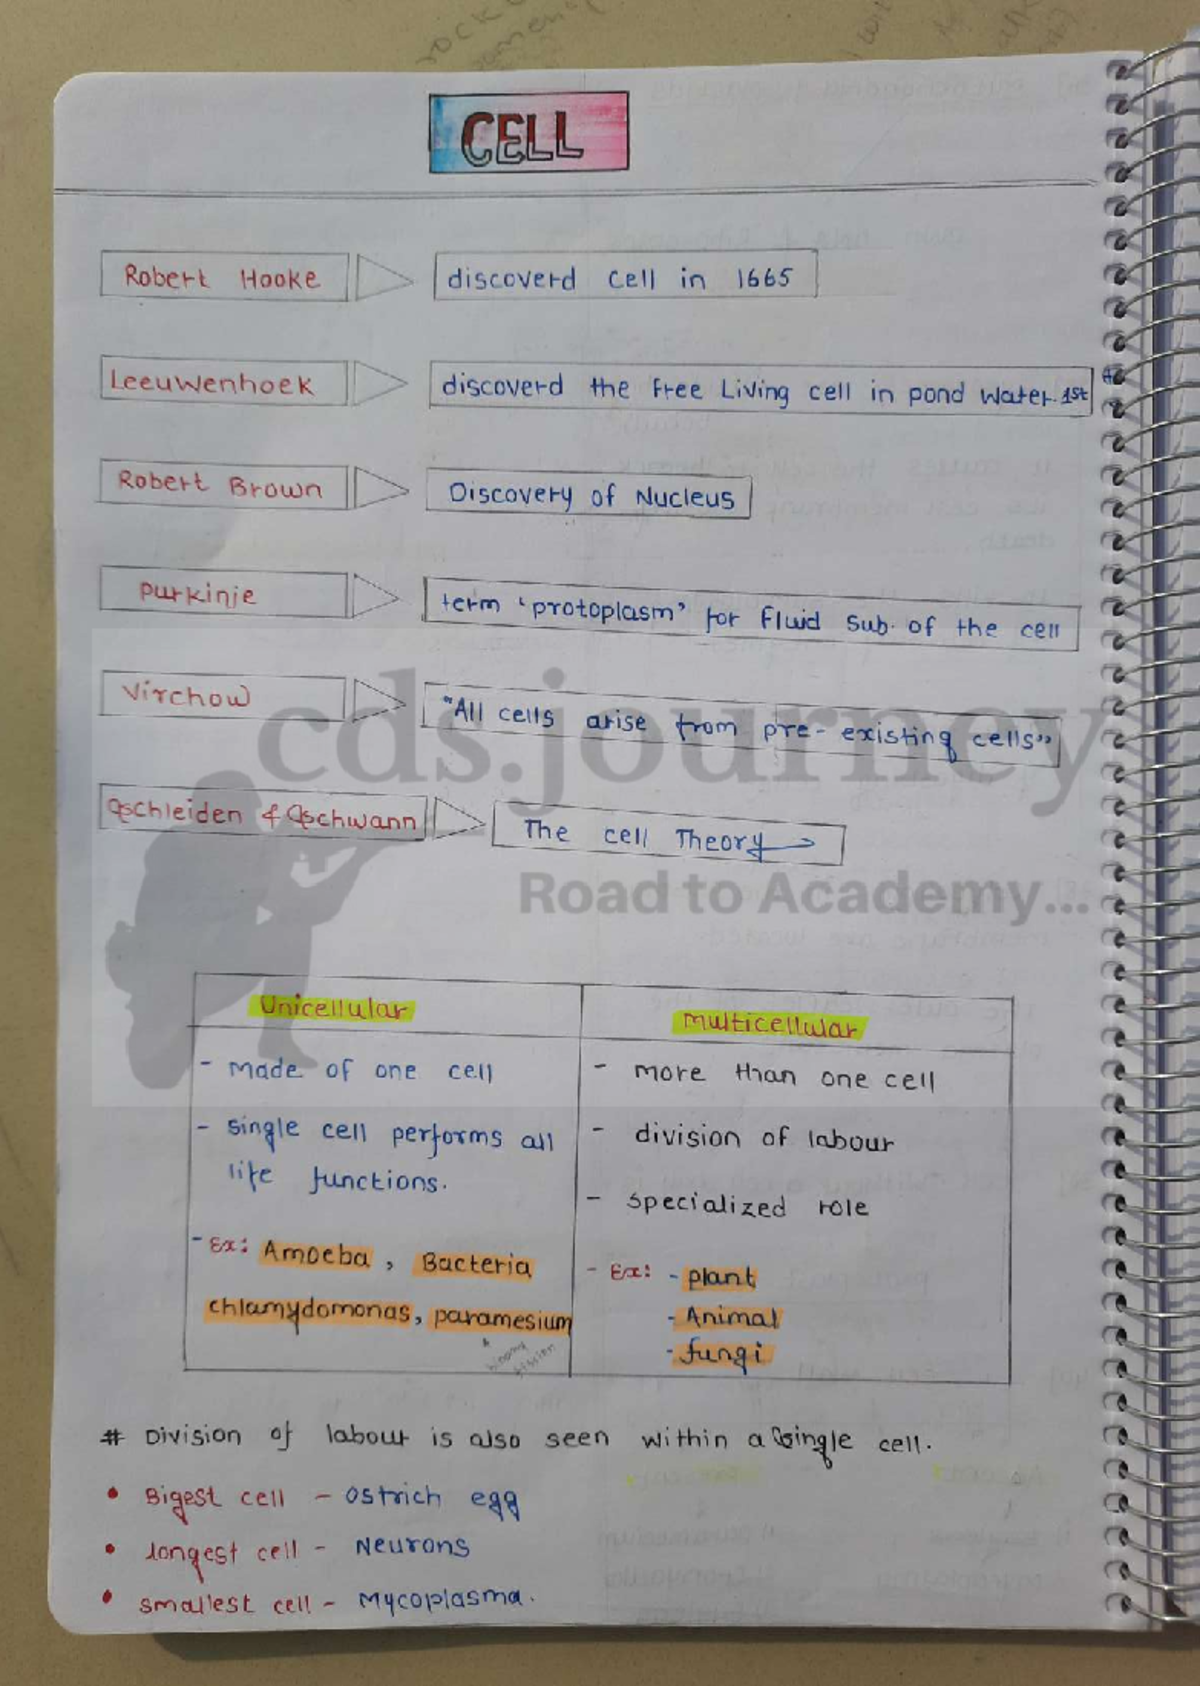 CELL
Robert Hooke
discoverd cell in 1665
Leeuwenhoek
discoverd the free Living cell in pond water. 1st
Robert Brown
Discovery of Nucleus
purkinje
term 'protoplasm' for fluid sub. of the cell
Virchow
"All cells arise from pre-existing cells"
cds.journey
schleiden & schwann
The cell Theory
Road to Academy...
Unicellular
Multicellular
- made of one cell
- more than one cell
- single cell performs all
life functions.
- division of labour
- specialized role
- Ex: Amoeba, Bacteria
chlamydomonas, paramesium
binary
fission
- Ex: - plant
- Animal
- fungi
# Division of labour is also seen within a single cell.
• Bigest cell - ostrich egg
• longest cell - Neurons
• smallest cell - Mycoplasma.